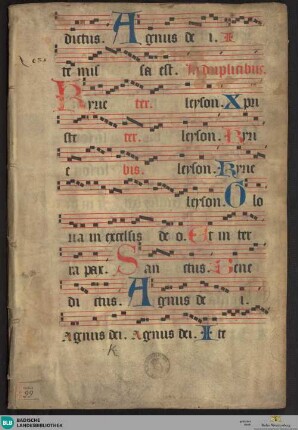 dictus. Agnus de i. I
te mis sa est. In duplicibus.
Kyrie ter. leyson. Xpri
ste ter. leyson. Kyri
e bis. leyson. Kyrie
leyson. Glo
ria in excelsis de o. Et in ter
ra pax. San ctus. Bene
di ctus. Agnus de i.
Agnus dei. Agnus dei. Ite
BLB BADISCHE
LANDESBIBLIOTHEK